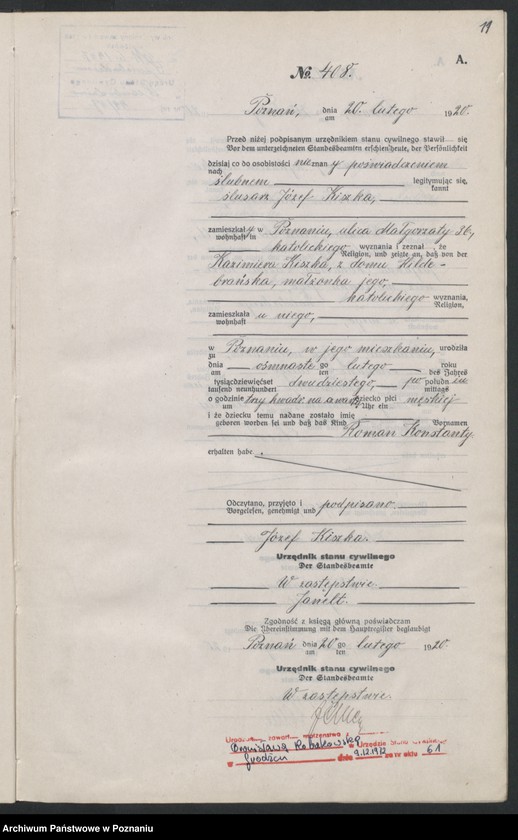 11
A.
No. 408.
Poznań, dnia 20. lutego 1920.
am
Przed niżej podpisanym urzędnikiem stanu cywilnego stawił się
Vor dem unterzeichneten Standesbeamten erschien heute, der Persönlichkeit
dzisiaj co do osobistości nieznany poświadczeniem
nach
ślubnem legitymując się,
kannt
ślusarz Józef Kiszka,
zamieszkały w Poznaniu, ulica Małgorzaty 26,
wohnhaft in
katolickiego wyznania i zeznał, że
Religion, und zeigte an, daß von der
Kazimiera Kiszka, z domu Hilde-
brańska, małżonka jego,
katolickiego wyznania,
Religion,
zamieszkała u niego,
wohnhaft
w Poznaniu, w jego mieszkaniu, urodziła
zu
dnia ósmnastego lutego roku
am ten des Jahres
tysiącdziewięćset dwudziestego, po południu
tausend neunhundert mittags
o godzinie trzy kwadr. na dziecko płci męskiej
um Uhr ein
i że dziecku temu nadane zostało imię
geboren worden sei und daß das Kind Vornamen
Roman Konstanty
erhalten habe.
Odczytano, przyjęto i podpisano.
Vorgelesen, genehmigt und
Józef Kiszka.
Urzędnik stanu cywilnego
Der Standesbeamte
W zastępstwie.
Janelt.
Zgodność z księgą główną poświadczam
Die Übereinstimmung mit dem Hauptregister beglaubigt
Poznań dnia 20 go lutego 1920.
am ten
Urzędnik stanu cywilnego
Der Standesbeamte
W zastępstwie.
zawarł małżeństwo
Bronisławą Robakowską
w Urzędzie Stanu
w dnia 9.12.19 za nr aktu 61
Archiwum Państwowe w Poznaniu